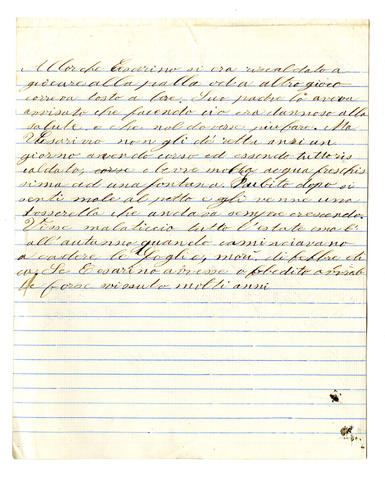 Allorche Cesarino si era riscaldato a
giocare alla palla od a altro gioco
correva tosto a bere. Suo padre lo aveva
avvisato che facendo ciò era dannoso alla
salute, e che nol dovesse più fare. Ma
Cesarino non gli dètte retta anzi un
giorno avendo corso ed essendo tutto ris
caldato, corse e bevve molta acqua freschis
sima ad una fontana. Subito dopo si
sentì male al petto e gli venne una
tosserella che andava sempre crescendo.
Visse malaticcio tutto l'estate ma
all'autunno quando cominciavano
a cadere le foglie, morì di febbre
Se Cesarino avesse obbedito avrebb
e forse vissuto molti anni